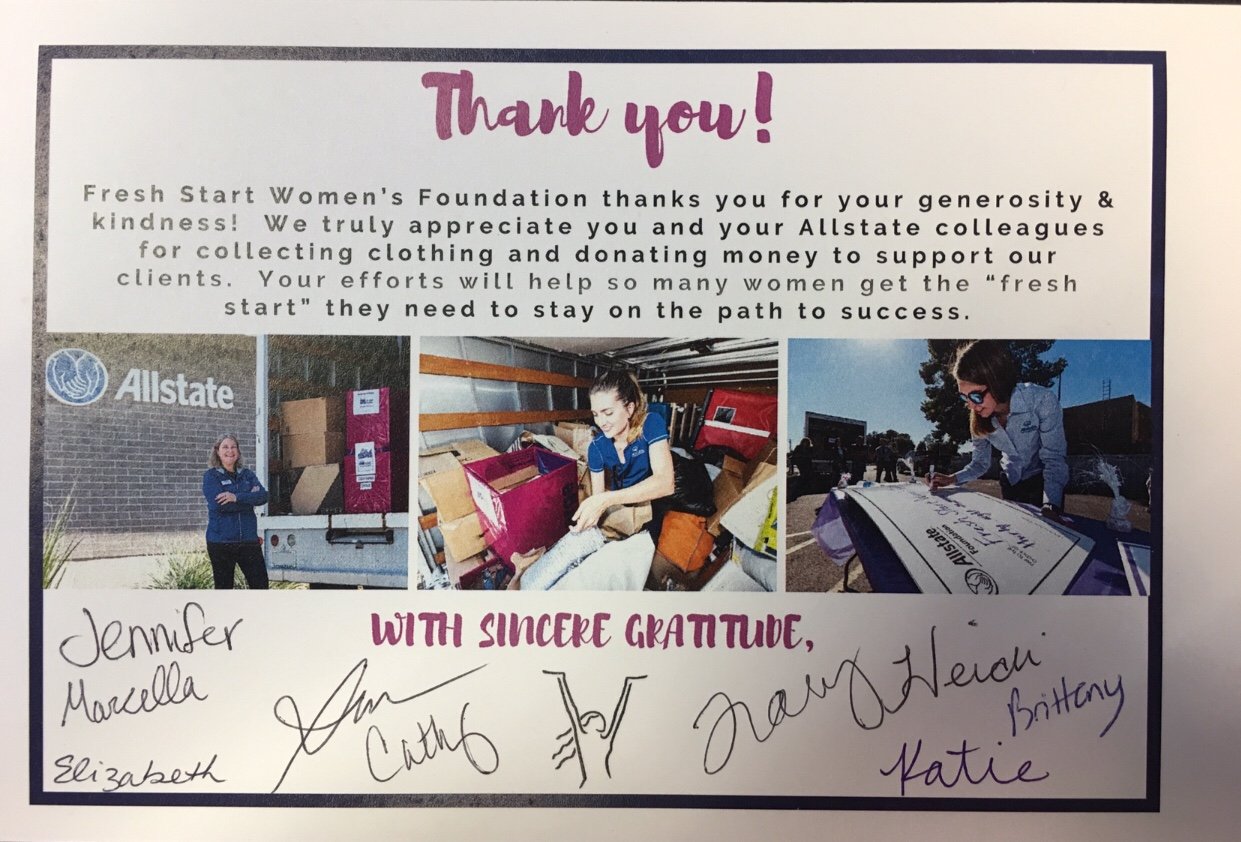 Thank you!
Fresh Start Women's Foundation thanks you for your generosity &
kindness! We truly appreciate you and your Allstate colleagues
for collecting clothing and donating money to support our
clients. Your efforts will help so many women get the "fresh
start" they need to stay on the path to success.
Allstate
Allstate
Foundation
WITH SINCERE GRATITUDE,
Jennifer
Marcella
Elizabeth
Cathy
Tracy
Heidi
Brittany
Katie